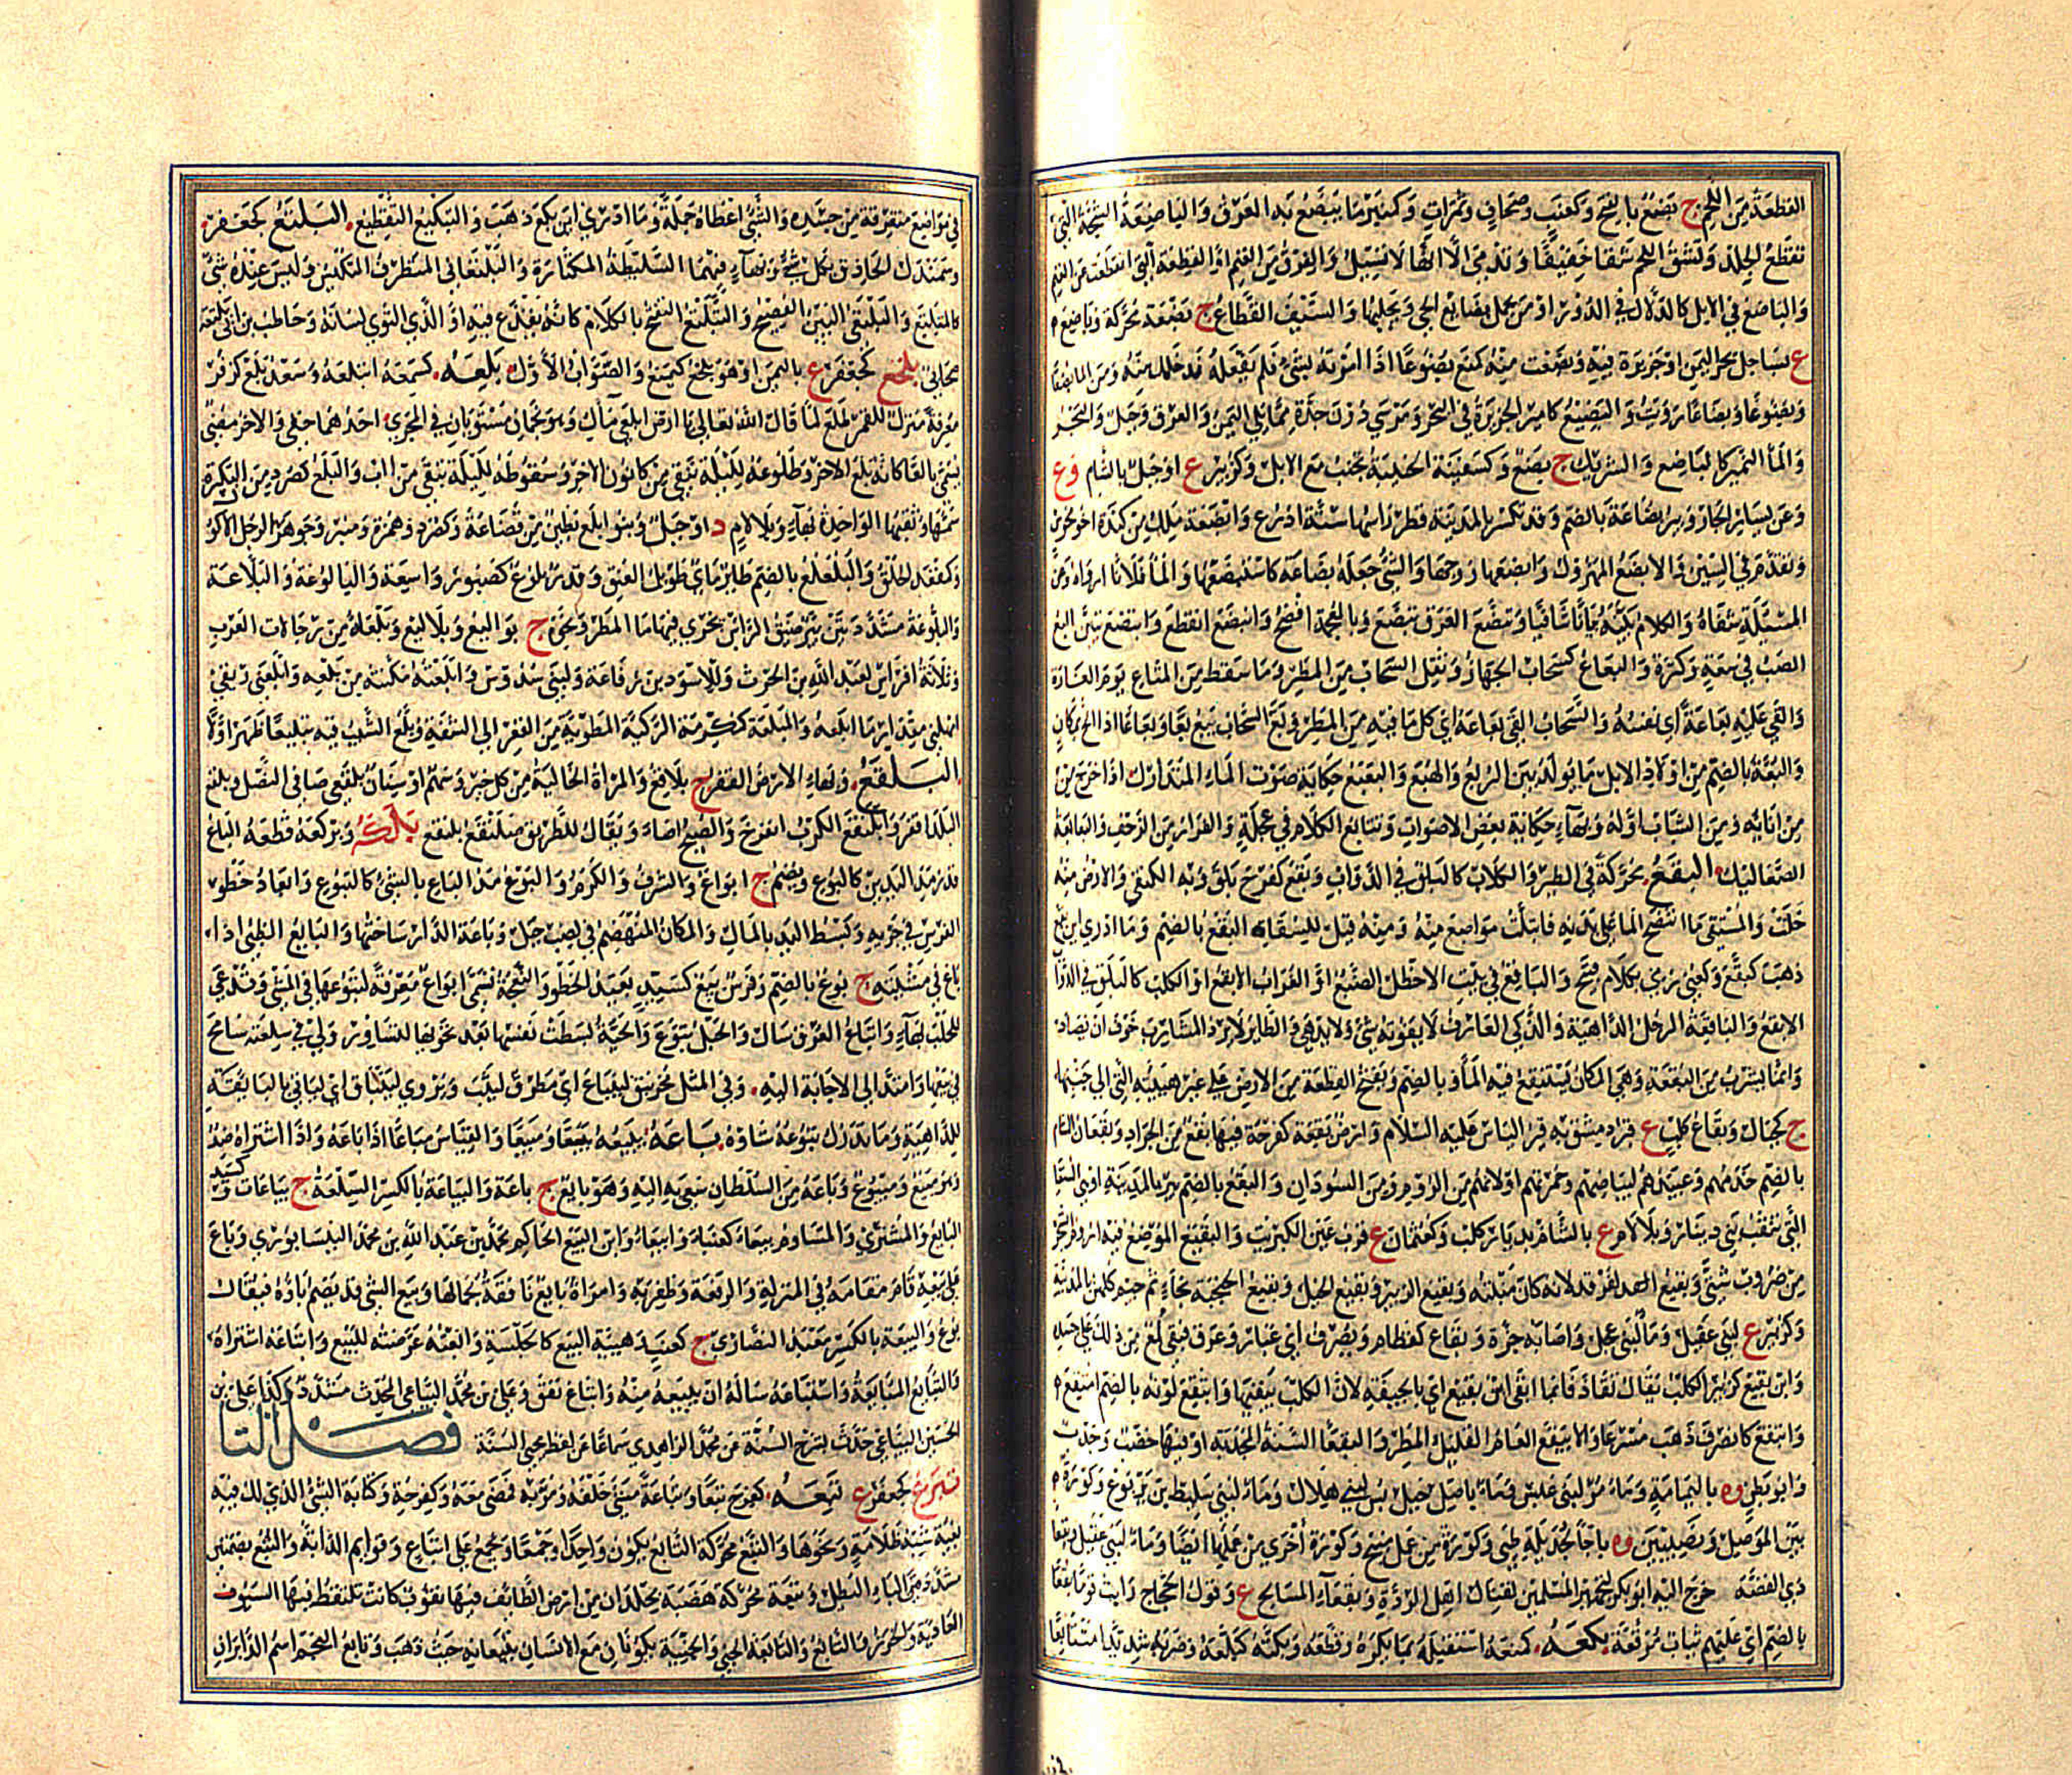 القطعة من اللحم ج بضع بالفتح وكعنب وصحاف وتمرات وكمنبر ما يبضع به العرق والباضعة الشجة التي
تقطع الجلد وتشق اللحم شقا خفيفا وتدمى الا انها لا تسيل والفرق من الغنم او القطعة التي انقطعت من الغنم
والباضع في الابل كالدلال في الدور او من يحمل بضائع الحي ويجلبها والسيف القطاع ج بضعة محركة وباضع ه
ع بساحل بحر اليمن او جزيرة فيه وبضعت منه كمنع بضوعا اذا امرته بشيء فلم يفعله فدخلك منه ومن الماء بضعا
وبضوعا وبضاعا رويت والبضيع كامير الجزيرة في البحر ومرسى دون جدة مما يلي اليمن والعرق وجبل والبحر
والماء النمير كالباضع والشريك ج بضع وكسفينة الجنيبة تجنب مع الابل وكزبير ع او جبل بالشام وع
وعن يسار الجار وبئر بضاعة بالضم وقد تكسر بالمدينة قطر راسها ستة اذرع وابضعة ملك من كندة اخو مخوس
وتقدم في السين والابضع المهزول وابضعها زوجها والشيء جعله بضاعة كاستبضعها والماء فلانا ارواه وعن
المسئلة شفاه والكلام بينه بيانا شافيا وتبضع العرق تبصع وبالمعجمة افصح وانبضع انقطع وابتضع تبين البع
الصب في سعة وكثرة والبعاع كسحاب الجهاز وثقل السحاب من المطر وما سقط من المتاع يوم الغارة
والقى عليه بعاعه اي نفسه والسحاب القى بعاعه اي كل ما فيه من المطر وبع السحاب يبع بعا وبعاعا اذا الح بمكان
والبعة بالضم من اولاد الابل ما يولد بين الربع والهبع والبعبع حكاية صوت الماء المتدارك اذا خرج من
من انائه ومن الشباب اوله وبهاء حكاية بعض الاصوات وتتابع الكلام في عجلة والفرار من الزحف والبعابعة
الصعاليك البقع محركة في الطير والكلاب كالبلق في الدواب وبقع كفرح بلق وبه اكتفى والارض منه
خلت والمستقي ما انتضح الماء على بدنه فابتلت مواضع منه ومنه قيل للسقاة البقع بالضم وما ادري اين بقع
ذهب كبقع وكعني رمي بكلام قبح والباقع في بيت الاخطل الضبع او الغراب الابقع او الكلب كالبلق في الدواب
الابقع والباقعة الرجل الداهية والذكي العارف لا يفوته شيء ولا يدهى والطائر لا يرد المشارب خوف ان يصاد
وانما يشرب من البقعة وهي المكان يستنقع فيه الماء وبالضم ويفتح القطعة من الارض على غير هيئة التي الى جنبها
ج كجبال وبقاع كلب ع قرب دمشق به قبر الياس عليه السلام وارض بقعة كفرحة فيها بقع من الجراد وبقعان الشام
بالضم خدمهم وعبيدهم لبياضهم وحمرتهم او لانهم من الروم ومن السودان والبقع بالضم بئر بالمدينة او هي السقيا
التي بنقب بني دينار وبلا لام ع بالشام بديار كلب وكعثمان ع قرب عين الكبريت والبقيع الموضع فيه اروم الشجر
من ضروب شتى وبقيع الغرقد لانه كان منبته وبقيع الزبير وبقيع الخيل وبقيع الخبجبة بخاء ثم جيم كلهن بالمدينة
وكزبير ع لبني عقيل وماء لبني عجل واصابه خرء بقاع كقطام ويصرف اي غبار وعرق فبقي لمع من ذلك على جسده
وابن بقيع كزبير الكلب يقال تقاذفا بما ابقى ابن بقيع اي بالجيفة لان الكلب يبقيها وابتقع لونه بالضم امتقع ه
وانبقع كانصرف ذهب مسرعا والابقع العام القليل المطر والبقعاء السنة المجدبة او فيها خصب وجدب
وابو بطن وه باليمامة وماء مر لبني عبس وماء باصل جبل بس لبني هلال وماء لبني سليط بن يربوع وكورة ه
بين الموصل ونصيبين وه باجا لجديلة طيئ وكورة من عمل منبج وكورة اخرى من عملها ايضا وماء لبني عقيل وبقعا
ذي القصة خرج اليه ابو بكر لتجهيز المسلمين لقتال اهل الردة وبقعاء المسالح ع وقول الحجاج رايت قوما بقعا
بالضم اي عليهم ثياب مرقعة بكعه كمنعه استقبله بما يكره وقطعه وبكته كبكعه وضربه شديدا متتابعا
في مواضع متفرقة من جسده والشيء اعطاه جملة وما ادري اين بكع ذهب والتبكيع التقطيع البلتع كجعفر
وسمندل الحاذق بكل شيء وبهاء فيهما السليطة المكثارة والبلتعاني المتظرف المتكيس وليس عنده شيء
كالمتبلتع والبلتعي البين الفصيح والتبلتع التفتح بالكلام كانه يقذع فيه او الذي التوى لسانه وحاطب بن ابي بلتعة
صحابي بلخع كجعفر ع باليمن او هو يلخع كيمنع والصواب الاول بلعه كسمعه ابتلعه وسعد بلع كزفر
معرفة منزل للقمر طلع لما قال الله تعالى يا ارض ابلعي ماءك وهو نجمان مستويان في المجرى احدهما خفي والاخر مضيء
يسمى بالعا كانه بلع الاخر وطلوعه لليلة تبقى من كانون الاخر وسقوطه لليلة تبقى من اب والبلع كصرد من البكرة
سمها وثقبها الواحدة بهاء وبلا لام د او جبل وبنو بلع بطين من قضاعة وكصرد وهمزة ومنبر وجوهر الرجل الاكول
وكمقعد الحلق والبلعلع بالضم طائر مائي طويل العنق وقدر بلوع كصبور واسعة والبالوعة والبلاعة
والبلوعة مشددتين بئر ضيق الراس يجري فيها ماء المطر ونحوه ج بواليع وبلاليع وبلعاء من رجالات العرب
وثلاثة افراس لعبد الله بن الحرث وللاسود بن رفاعة ولبني سدوس وابلعته مكنته من بلعه وابلعني ريقي
امهلني مقدار ما ابلعه والمبلعة كمكرمة الركية المطوية من القعر الى الشفة وبلع الشيب فيه تبليعا ظهر اولا
البلقع وبهاء الارض القفر ج بلاقع والمراة الخالية من كل خير وسهم او سنان بلقعي صافي النصل وبلقع
البلد اقفر وابلنقع الكرب انفرج والصبح اضاء ويقال للطريق صلنقع بلنقع بلكعه وبركعه قطعه الباع
قدر مد اليدين كالبوع ويضم ج ابواع والشرف والكرم والبوع مد الباع بالشيء كالتبوع وابعاد خطو
الفرس في جريه وبسط اليد بالمال والمكان المنهضم في لصب جبل وباعة الدار ساحتها والبائع الظبي اذا
باع في مشيه ج بوع بالضم وفرس بيع كسيد بعيد الخطو والنعجة تسمى ابواع معرفة لتبوعها في المشي وتدعى
للحلب بها وانباع العرق سال والحبل تبوع والحية بسطت نفسها بعد تحويها لتساور ولي في سلعته سامح
في بيعها وامتد الى الاجابة اليه وفي المثل مخرنبق لينباع اي مطرق ليثب ويروى لينباق اي لياتي بالبائقة
للداهية وما تدرك تبوعه شاوه باعه يبيعه بيعا ومبيعا والقياس مباعا اذا باعه واذا اشتراه ضد
وهو مبيع ومبيوع وباعه من السلطان سعى به اليه وهو بائع ج باعة والبياعة بالكسر السلعة ج بياعات وكسيد
البائع والمشتري والمساوم بيعاء كعنباء وابيعاء وابن البيع الحاكم محمد بن عبد الله بن محمد النيسابوري وباع
على بيعه قام مقامه في المنزلة والرفعة وظفر به وامراة بائع نافقة لجمالها وبيع الشيء قد يضم باؤه فيقال
بوع والبيعة بالكسر متعبد النصارى ج كعنب وهيئة البيع كالجلسة وابعته عرضته للبيع وابتاعه اشتراه
والتبايع المبايعة واستباعه ساله ان يبيعه منه وانباع نفق وعلي بن محمد البياعي المحدث مشدد وكذا علي بن
الحسين البياعي حدث بشرح السنة عن محمد الزاهدي سماعا عن لفظ محيي السنة فصل التا
تبرع كجعفر ع تبعه كفرح تبعا وتباعة مشى خلفه ومر به فمضى معه وكفرحة وكتابة الشيء الذي لك فيه
بغية شبه ظلامة ونحوها والتبع محركة التابع يكون واحدا وجمعا ويجمع على اتباع وقوائم الدابة والتبع بضمتين
مشددة الباء الظل وتبعة محركة هضبة بجلدان من ارض الطائف فيها نقوب كانت تلتقط فيها السيوف
العادية والخرز والتابع والتابعة الجني والجنية يكونان مع الانسان يتبعانه حيث ذهب وتابع النجم اسم الدبران